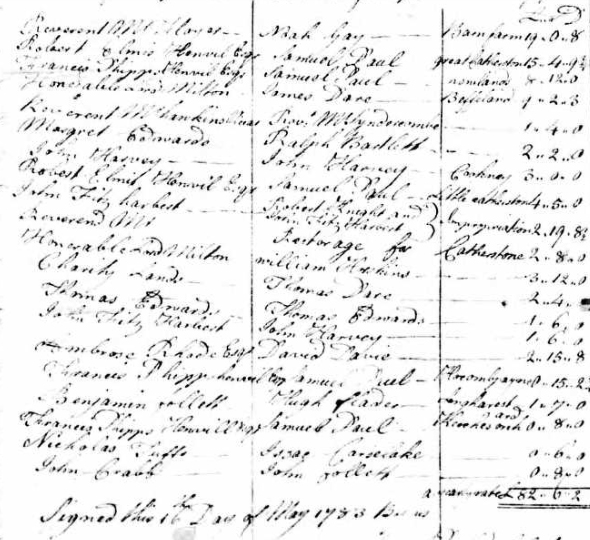 L S D
Reverent Mr Hayes Noah Gay Bamfarm 19 0 8
Robert Elmis Henvil Esqr Samuel Paul great Catherston 15 4 9½
Francis Phipps Henvil Esqr Samuel Paul 8 12 0
Honerable Lord Milton James Dare 4 2 3
Reverent Mr Hawkins Revd Mr Syndercombe 1 4 0
Margret Edwards Ralph Bartlett 2 2 0
John Harvey John Harvey 3 0 0
Robert Elmis Henvil Esqr Samuel Paul Little Catherston 4 5 0
John Fitz harbest Robert Knight and
John Fitz Harbest Impropriation 2 19 8½
Reverend Mr Rectorage for Catherstone 2 8 0
Honerable Lord Milton William Hoskins 3 12 0
Charity Sands Thomas Dare 2 4
Thomas Edwards Thomas Edwards 1 6 0
John Fitz Harbest John Harvey 1 6 0
Ambrose Rhode Esqr David Davie 2 15 8
Francis Phipp henvil Esqr Samuel Paul 0 15 2½
Benjamin follett Hugh 1 7 0
Francis Phipps Henvill Esqr Samuel Paul 0 8 0
Nicholas Tufts Isaac Carselake 0 6 0
John Crabb John follett 0 8 0
82 6 2
Signed this 16th Day of May 1783 By us